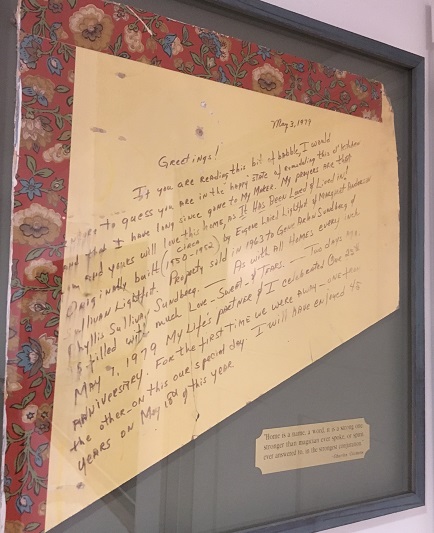 May 3, 1979
Greetings!
If you are reading this bit of babble, I would
to guess you are in the "happy" state of remodeling this ol' kitchen
and that I have long since gone to My Maker. My prayers are that
and yours will love this home as It Has Been Loved & Lived in!
Originally built (circa 1950-1952) by Eugene Lord Lightfoot & Margaret
Sullivan Lightfoot. Property sold in 1963 to Gene Sundberg &
Phyllis Sullivan Sundberg. — As with All Homes every inch
is filled with much Love - Sweat - & Tears. — Two days ago,
May 1, 1979 My Life's partner & I celebrated our 22nd
ANNIVERSARY. For the first time we were away - one from
the other - on this our special day. I will have enjoyed 45
YEARS ON May 18th of this year
"Home is a name, a word, it is a strong one;
stronger than magician ever spoke, or spirit
ever answered to, in the strongest conjuration."
-Charles Dickens